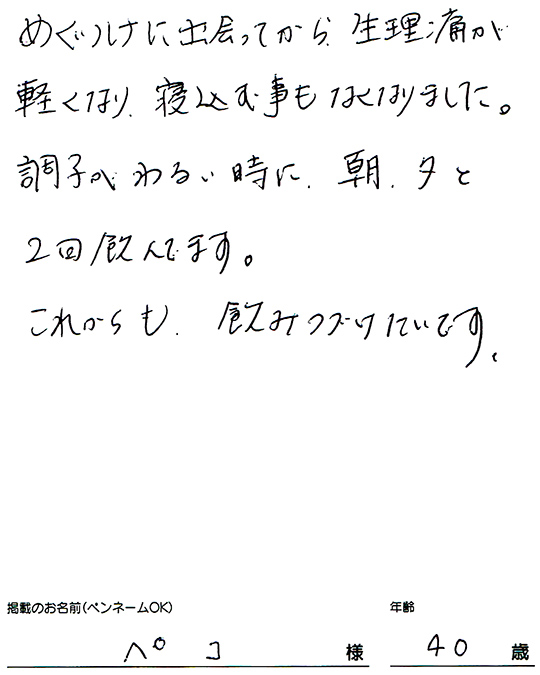 めぐルナに出会ってから、生理痛が
軽くなり、寝込む事もなくなりました。
調子がわるい時に、朝、夕と
2回飲んでます。
これからも、飲みつづけたいです。
掲載のお名前(ペンネームOK)
年齢
ペコ 様 40 歳